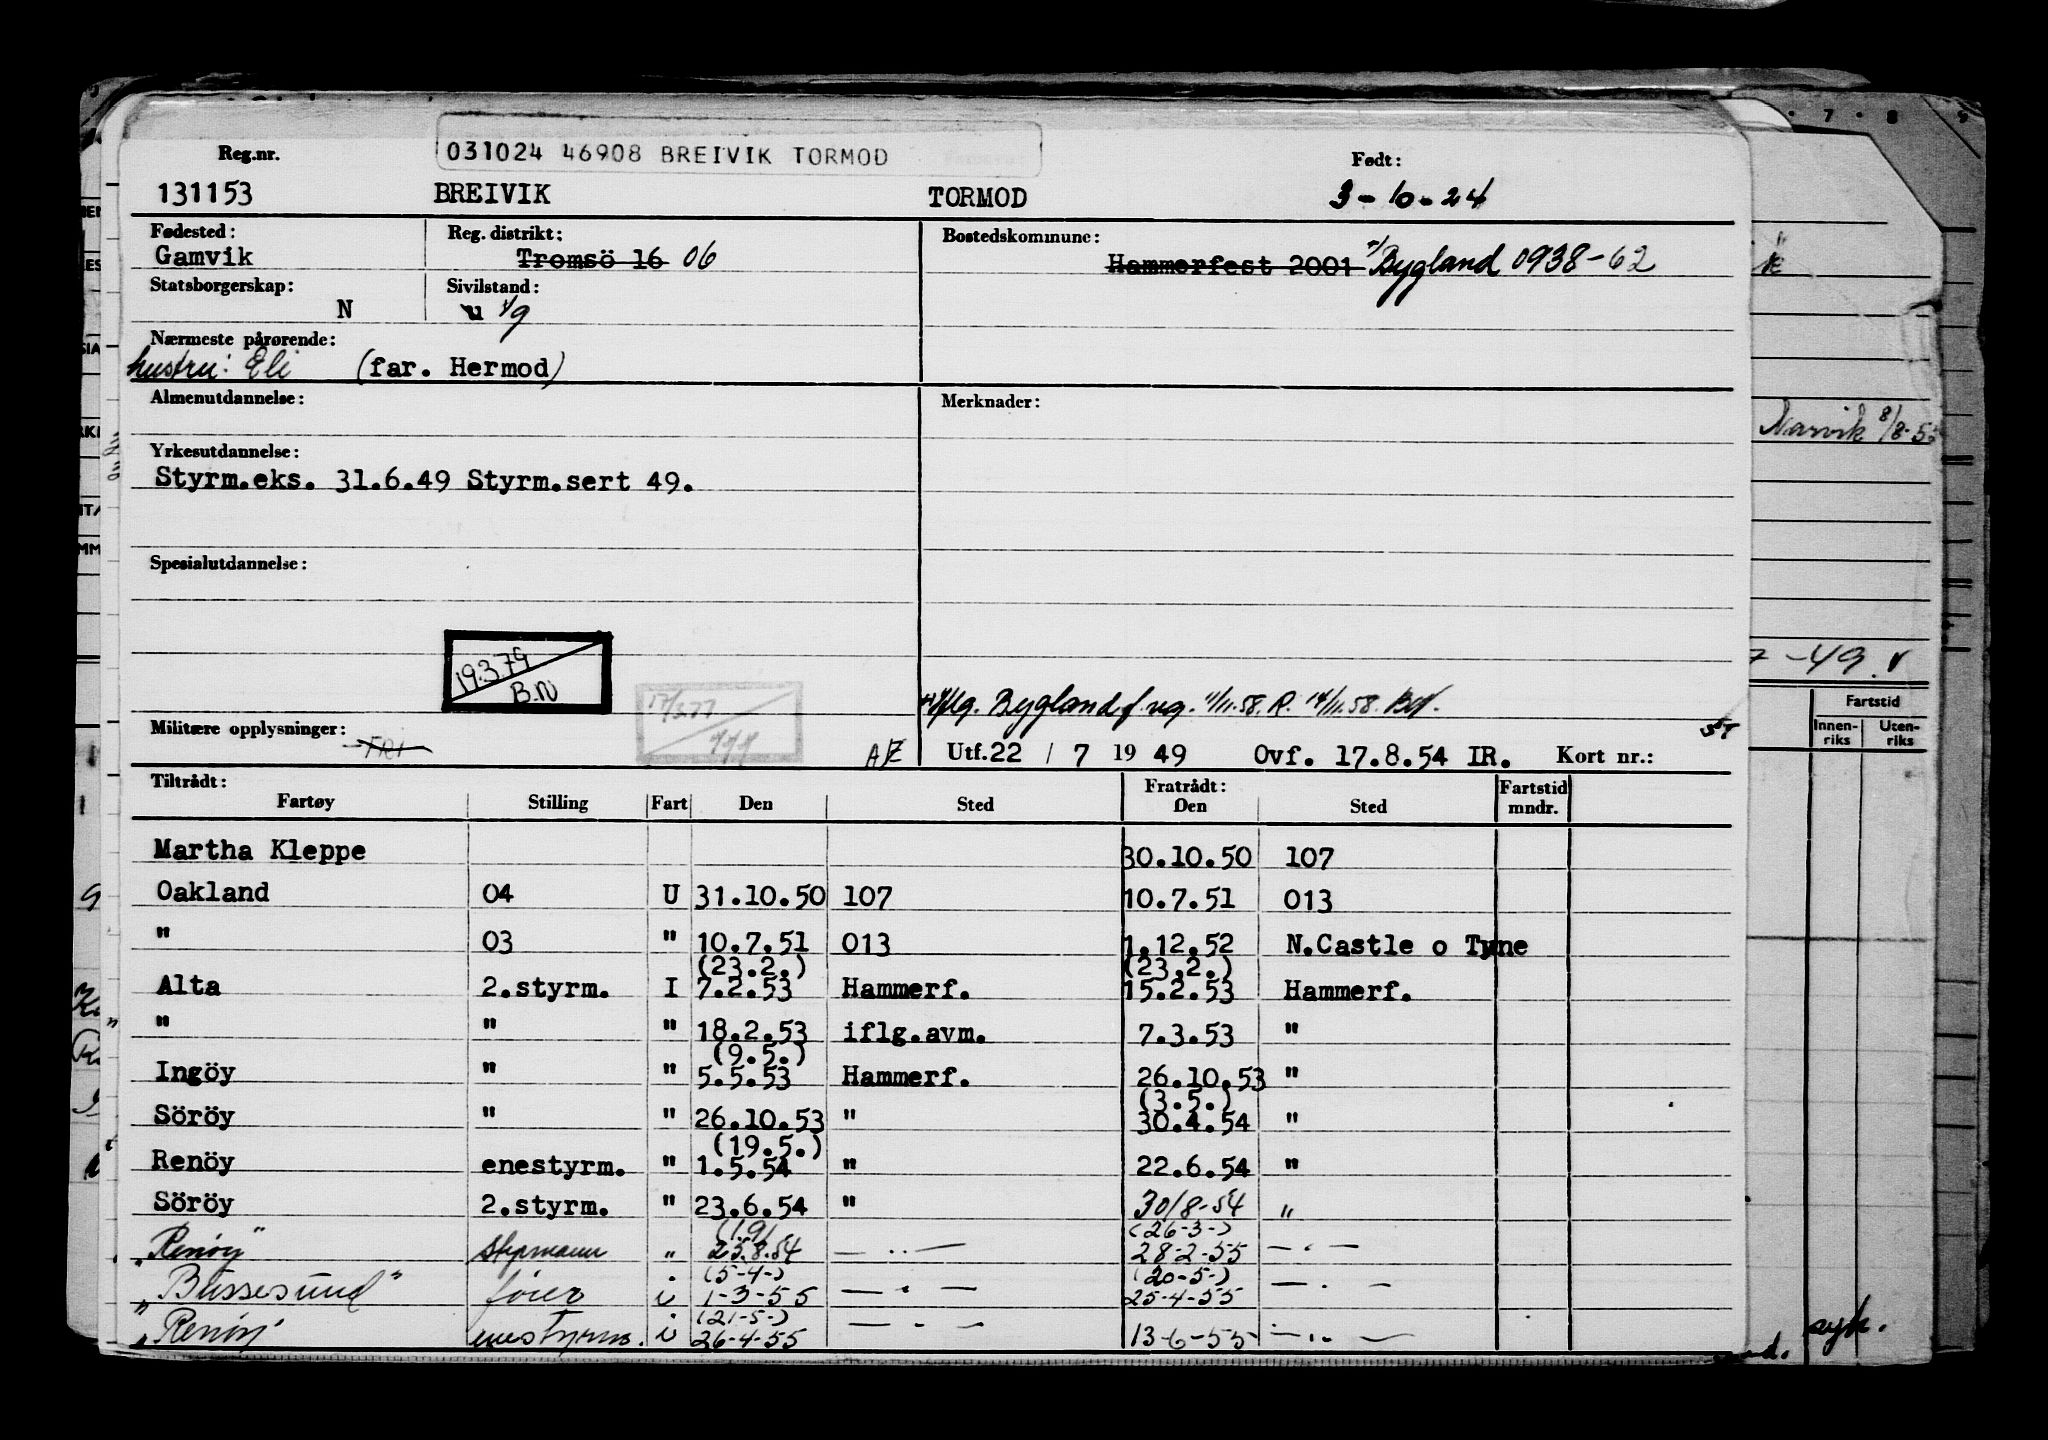 Reg.nr. 031024 46908 BREIVIK TORMOD Født:
131153 BREIVIK TORMOD 3-10-24
Fødested: Reg. distrikt: Bostedskommune:
Gamvik Tromsö 16 06 Hammerfest 2001 Bygland 0938-62
Statsborgerskap: Sivilstand:
N u g
Nærmeste pårørende:
hustru: Eli (far. Hermod)
Almenutdannelse: Merknader:
Yrkesutdannelse:
Styrm.eks. 31.6.49 Styrm.sert 49.
Spesialutdannelse:
19.3.79
B.N
Bygland 11/11.58. R. 14/11.58.
Militære opplysninger: FRI Utf.22 / 7 19 49 Ovf. 17.8.54 IR. Kort nr.:
Tiltrådt: Fratrådt: Fartstid
Fartøy Stilling Fart Den Sted Den Sted mndr.
Martha Kleppe 30.10.50 107
Oakland 04 U 31.10.50 107 10.7.51 013
" 03 " 10.7.51 013 1.12.52 N.Castle o Tyne
(23.2.) (23.2.)
Alta 2.styrm. I 7.2.53 Hammerf. 15.2.53 Hammerf.
" " " 18.2.53 iflg.avm. 7.3.53 "
(9.5.)
Ingöy " " 5.5.53 Hammerf. 26.10.53 "
(3.5.)
Söröy " " 26.10.53 " 30.4.54 "
(19.5.)
Renöy enestyrm. " 1.5.54 " 22.6.54 "
Söröy 2.styrm. " 23.6.54 " 30/8-54 "
(1.9) (26-3-)
"Renöy" styrmann " 25.8.54 — .. — 28-2-55 — . —
(5-4-) (20-5-)
"Bussesund" fører i 1-3-55 — . — 25-4-55 — . —
(21-5-)
"Renöy" enestyrm. i 26-4-55 — . — 13-6-55 — .. —
Narvik 8/8-5
-49. v
Fartstid
Innen-riks Uten-riks